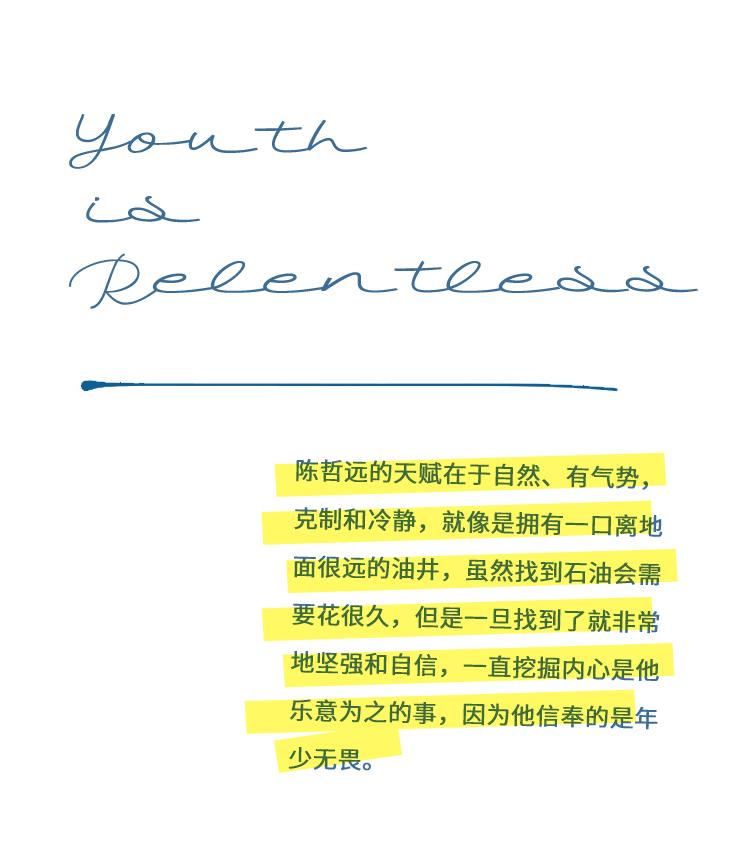 Youth
is
Relentless
陈哲远的天赋在于自然、有气势，
克制和冷静，就像是拥有一口离地
面很远的油井，虽然找到石油会需
要花很久，但是一旦找到了就非常
地坚强和自信，一直挖掘内心是他
乐意为之的事，因为他信奉的是年
少无畏。